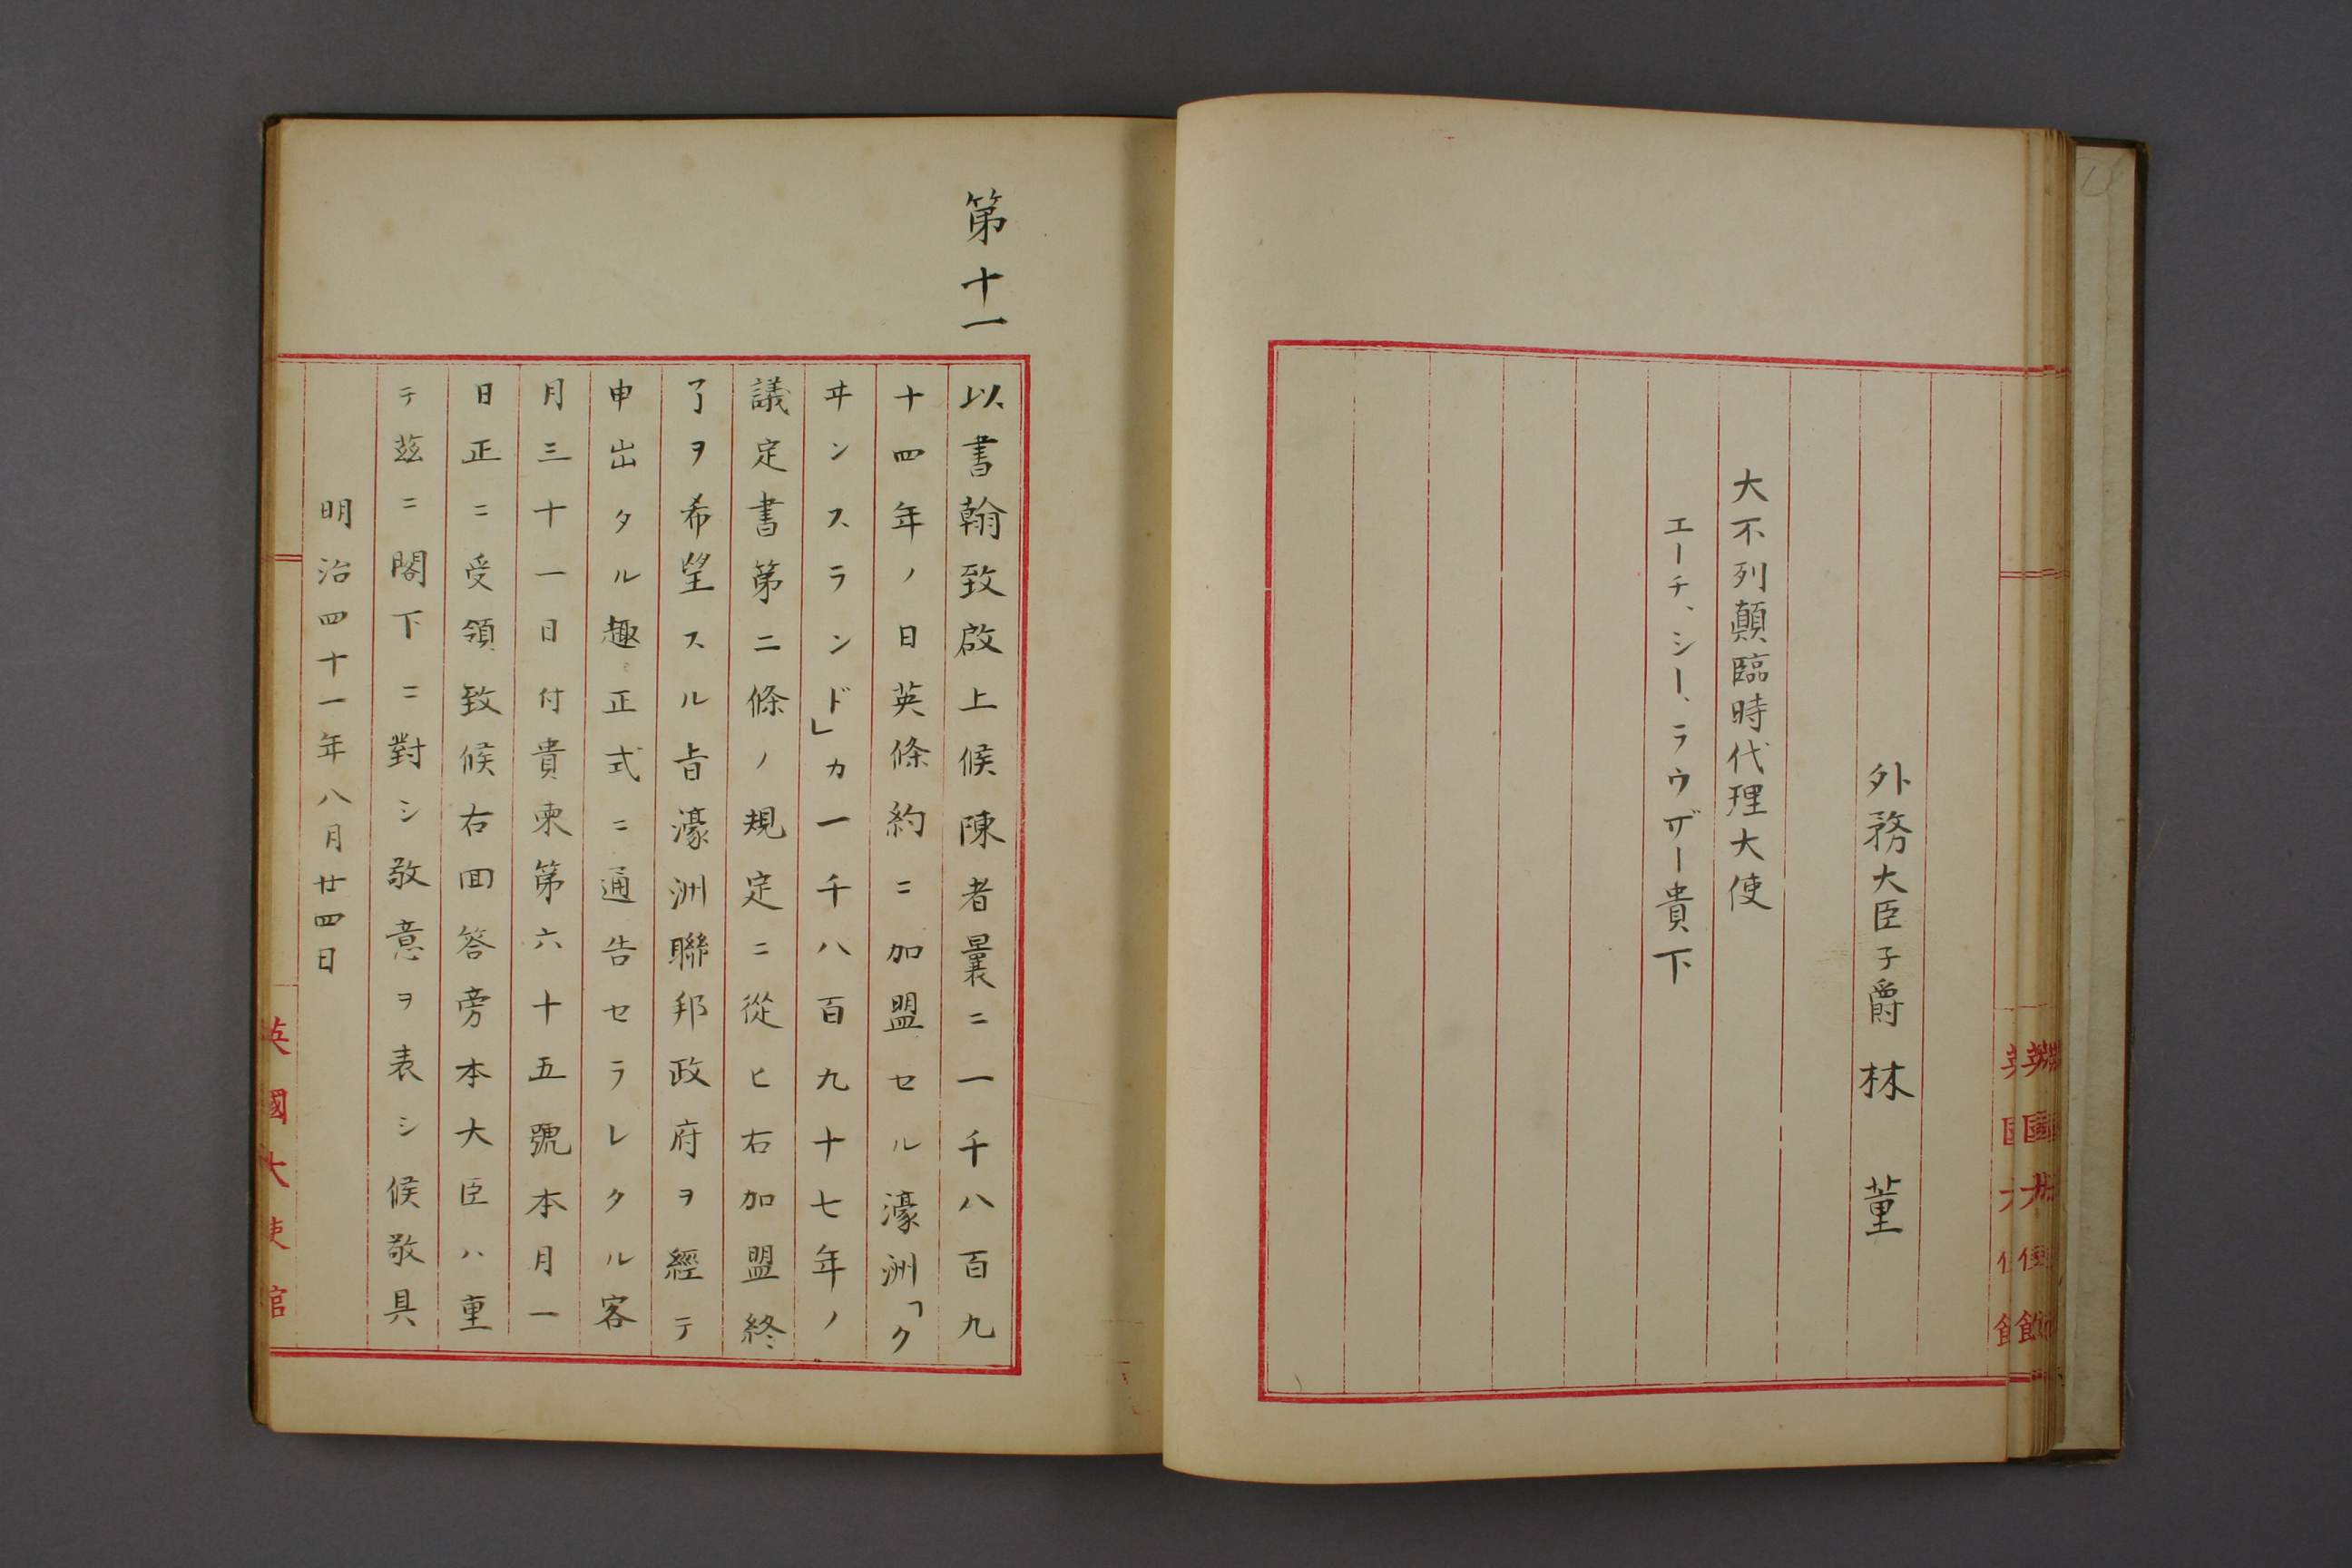 外務大臣子爵 林 董
大不列顛臨時代理大使
エーチ、シー、ラウザー貴下
第十一
以書翰致啟上候陳者曩ニ一千八百九
十四年ノ日英條約ニ加盟セル濠洲「ク
ヰンスランド」カ一千八百九十七年ノ
議定書第二條ノ規定ニ從ヒ右加盟終
了ヲ希望スル旨濠洲聯邦政府ヲ經テ
申出タル趣正式ニ通告セラレクル客
月三十一日付貴柬第六十五號本月一
日正ニ受領致候右回答旁本大臣ハ重
テ茲ニ閣下ニ對シ敬意ヲ表シ候敬具
明治四十一年八月廿四日
英國大使館